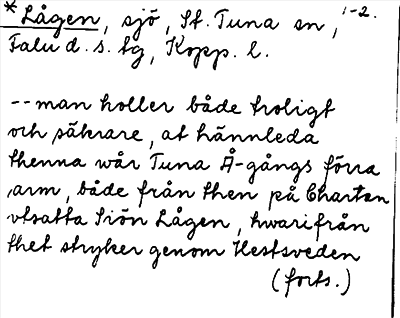 *Lågen, sjö, St. Tuna sn, 1-2.
Falu d. s. tg, Kopp. l.
--man holler både troligt
och säkrare, at hännleda
thenna wår Tuna Å-gångs förra
arm, både från then på Chartan
vtsatta Siön Lågen, hwarifrån
thet stryker genom Hestsveden
(forts.)